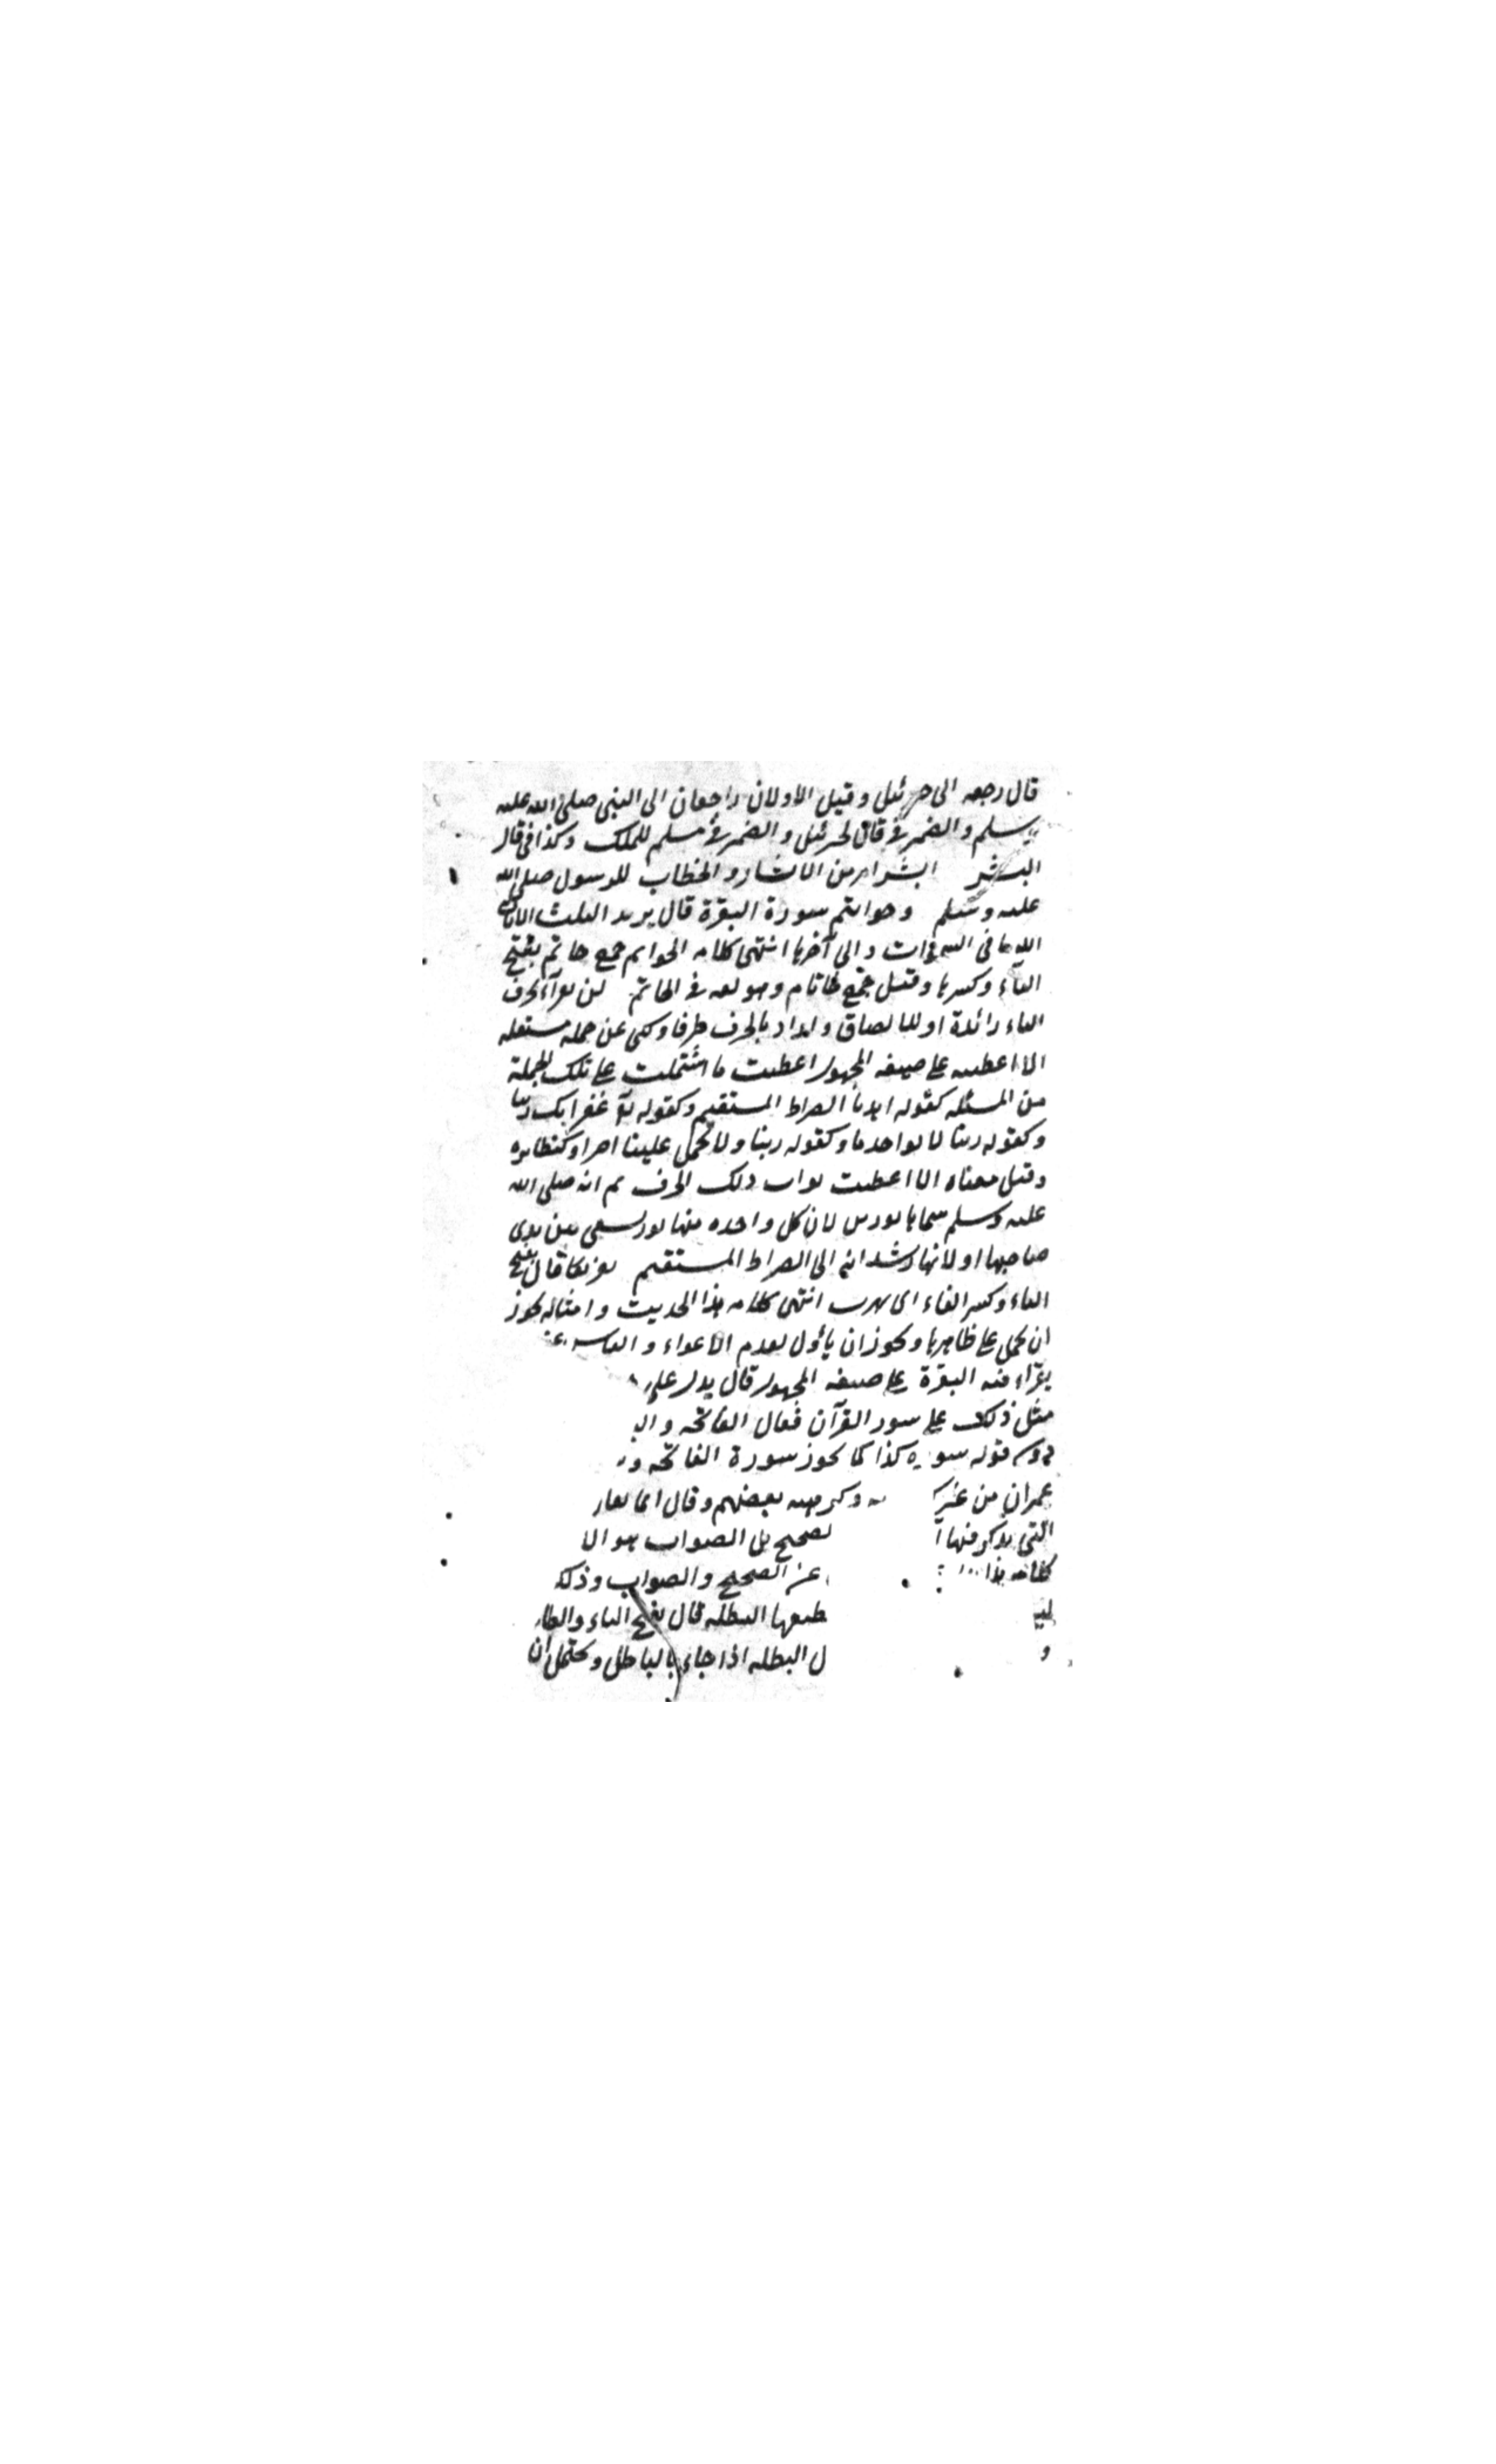 قال رجعه الى جبرئيل وقيل الاولان راجعان الى النبي صلى الله عليه
وسلم والضمير في قال لجبرئيل والضمير في مسلم للملك وكذا في قال
البشر ابشر امر من الابشار والخطاب للرسول صلى الله
عليه وسلم وخواتيم سورة البقرة قال يريد الثلث الايات
لله ما في السموات والى آخرها انتهى كلامه الخواتم جمع خاتم بفتح
التاء وكسرها وقيل جمع خاتام وهو لغة في الخاتم لن تقرأ بحرف
الباء زائدة او للالصاق واراد بالحرف طرفا وكنى عن جملة مستقلة
الا اعطيته على صيغة المجهول اعطيت ما اشتملت على تلك الجملة
من المسئلة كقوله اهدنا الصراط المستقيم وكقوله غفرانك ربنا
وكقوله ربنا لا تؤاخذنا وكقوله ربنا ولا تحمل علينا اصرا وكنظائره
وقيل معناه الا اعطيت ثواب ذلك الحرف ثم انه صلى الله
عليه وسلم سماها نورين لان كل واحدة منها نور يسعى بين يدي
صاحبها او لانها يرشدانه الى الصراط المستقيم قال بفتح
الياء وكسر الفاء اي يهرب انتهى كلامه هذا الحديث وامثاله يجوز
ان يحمل على ظاهرها ويجوز ان يأول بعدم الاغواء و
يقرأ فيه البقرة على صيغة المجهول قال يدل على
مثل ذلك على سور القرآن فقال الفاتحة و
قوله سورة كذا كما يجوز سورة الفاتحة و
عمران من غير وكرهه بعضهم وقال انما يقال
التي يذكر فيها الصحيح بل الصواب هو الا
كلامه هذا عن الصحيح والصواب وذلك
البطلة قال بفتح الباء والطاء
البطلة اذا جاء بالباطل ويحتمل ان